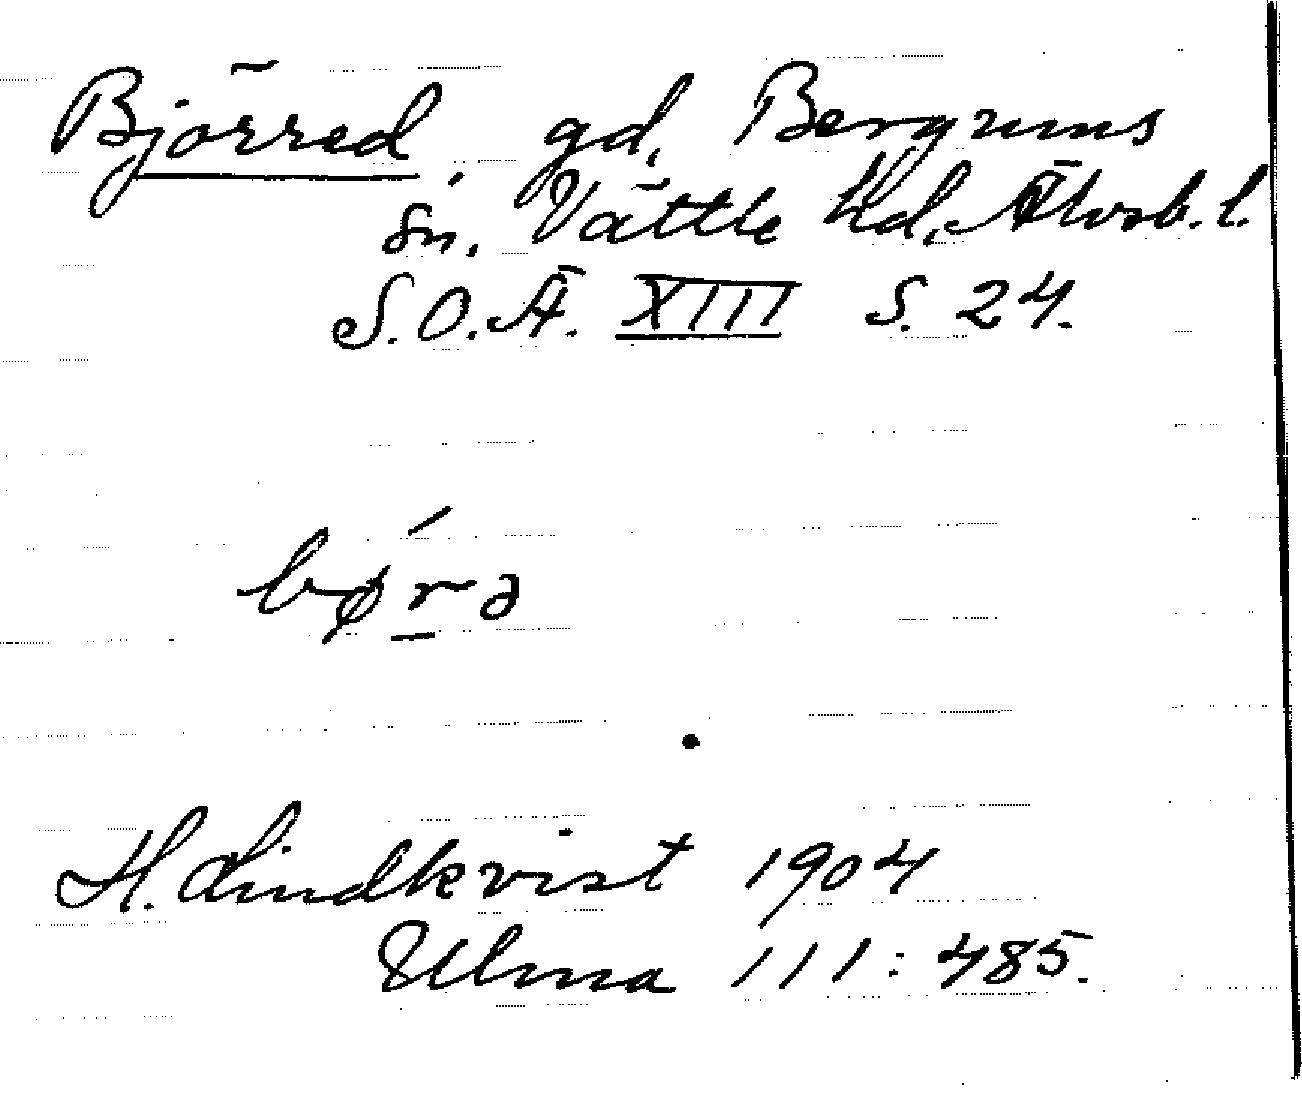 Björred, gd, Bergums
sn. Vättle hd. Älvsb. l.
S.O.Ä. XIII S. 24.
bǿr̠ə
H. Lindkvist 1904
Ulma 111:485.